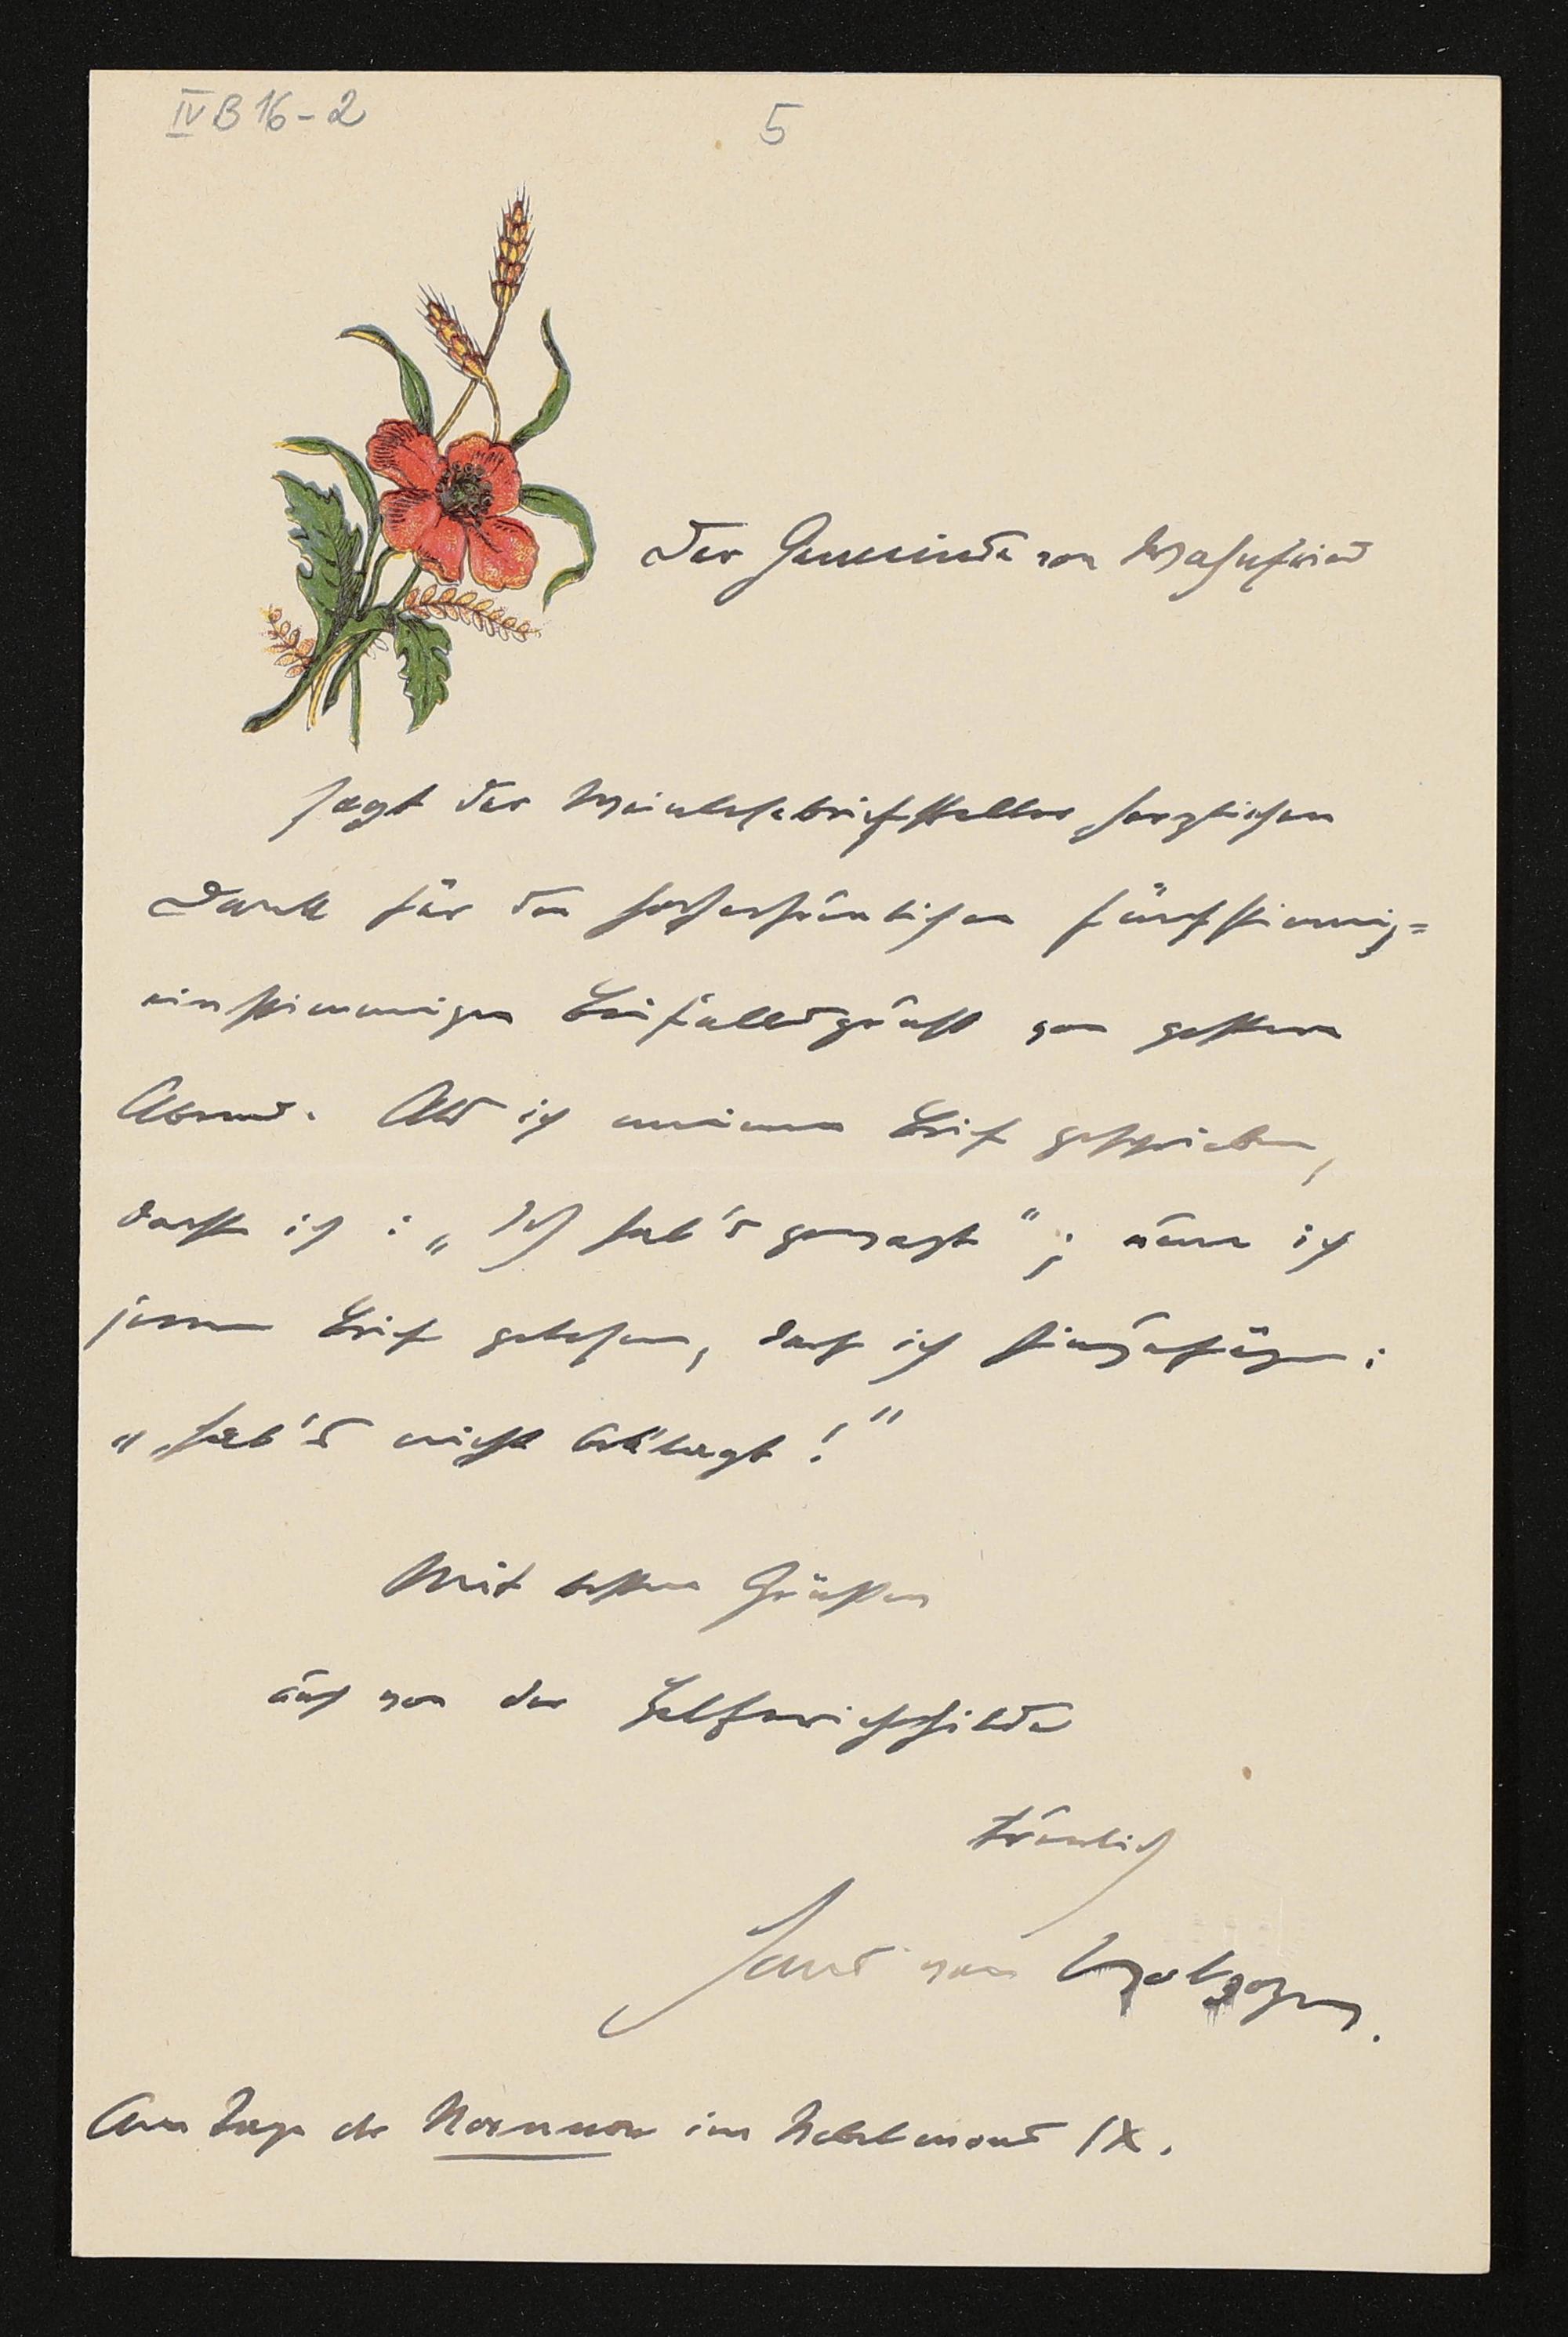 IV B 16-2
5
Der Gemeinde von Wahnfried
sagt der herzlichen
Dank für den hocherfreulichen fünfstimmig-
einstimmigen Beifallsgruss von gestern
Abend. Als ich meinen Brief geschrieben,
dacht ich: „Ich hab's gewagt"; nun ich
jenen Brief gelesen, darf ich hinzufügen:
„hab's nicht beklagt!"
Mit besten Grüssen
auch von der
treulich
Hans von Wolzogen.
Am Tage der Nornen im Nebelmond IX.